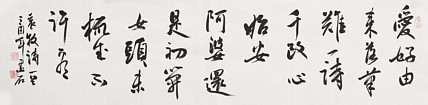 愛好由
来落筆
難一詩
千改心
始安
阿婆還
是初笄
女頭未
梳成不
許看
袁枚詩一首